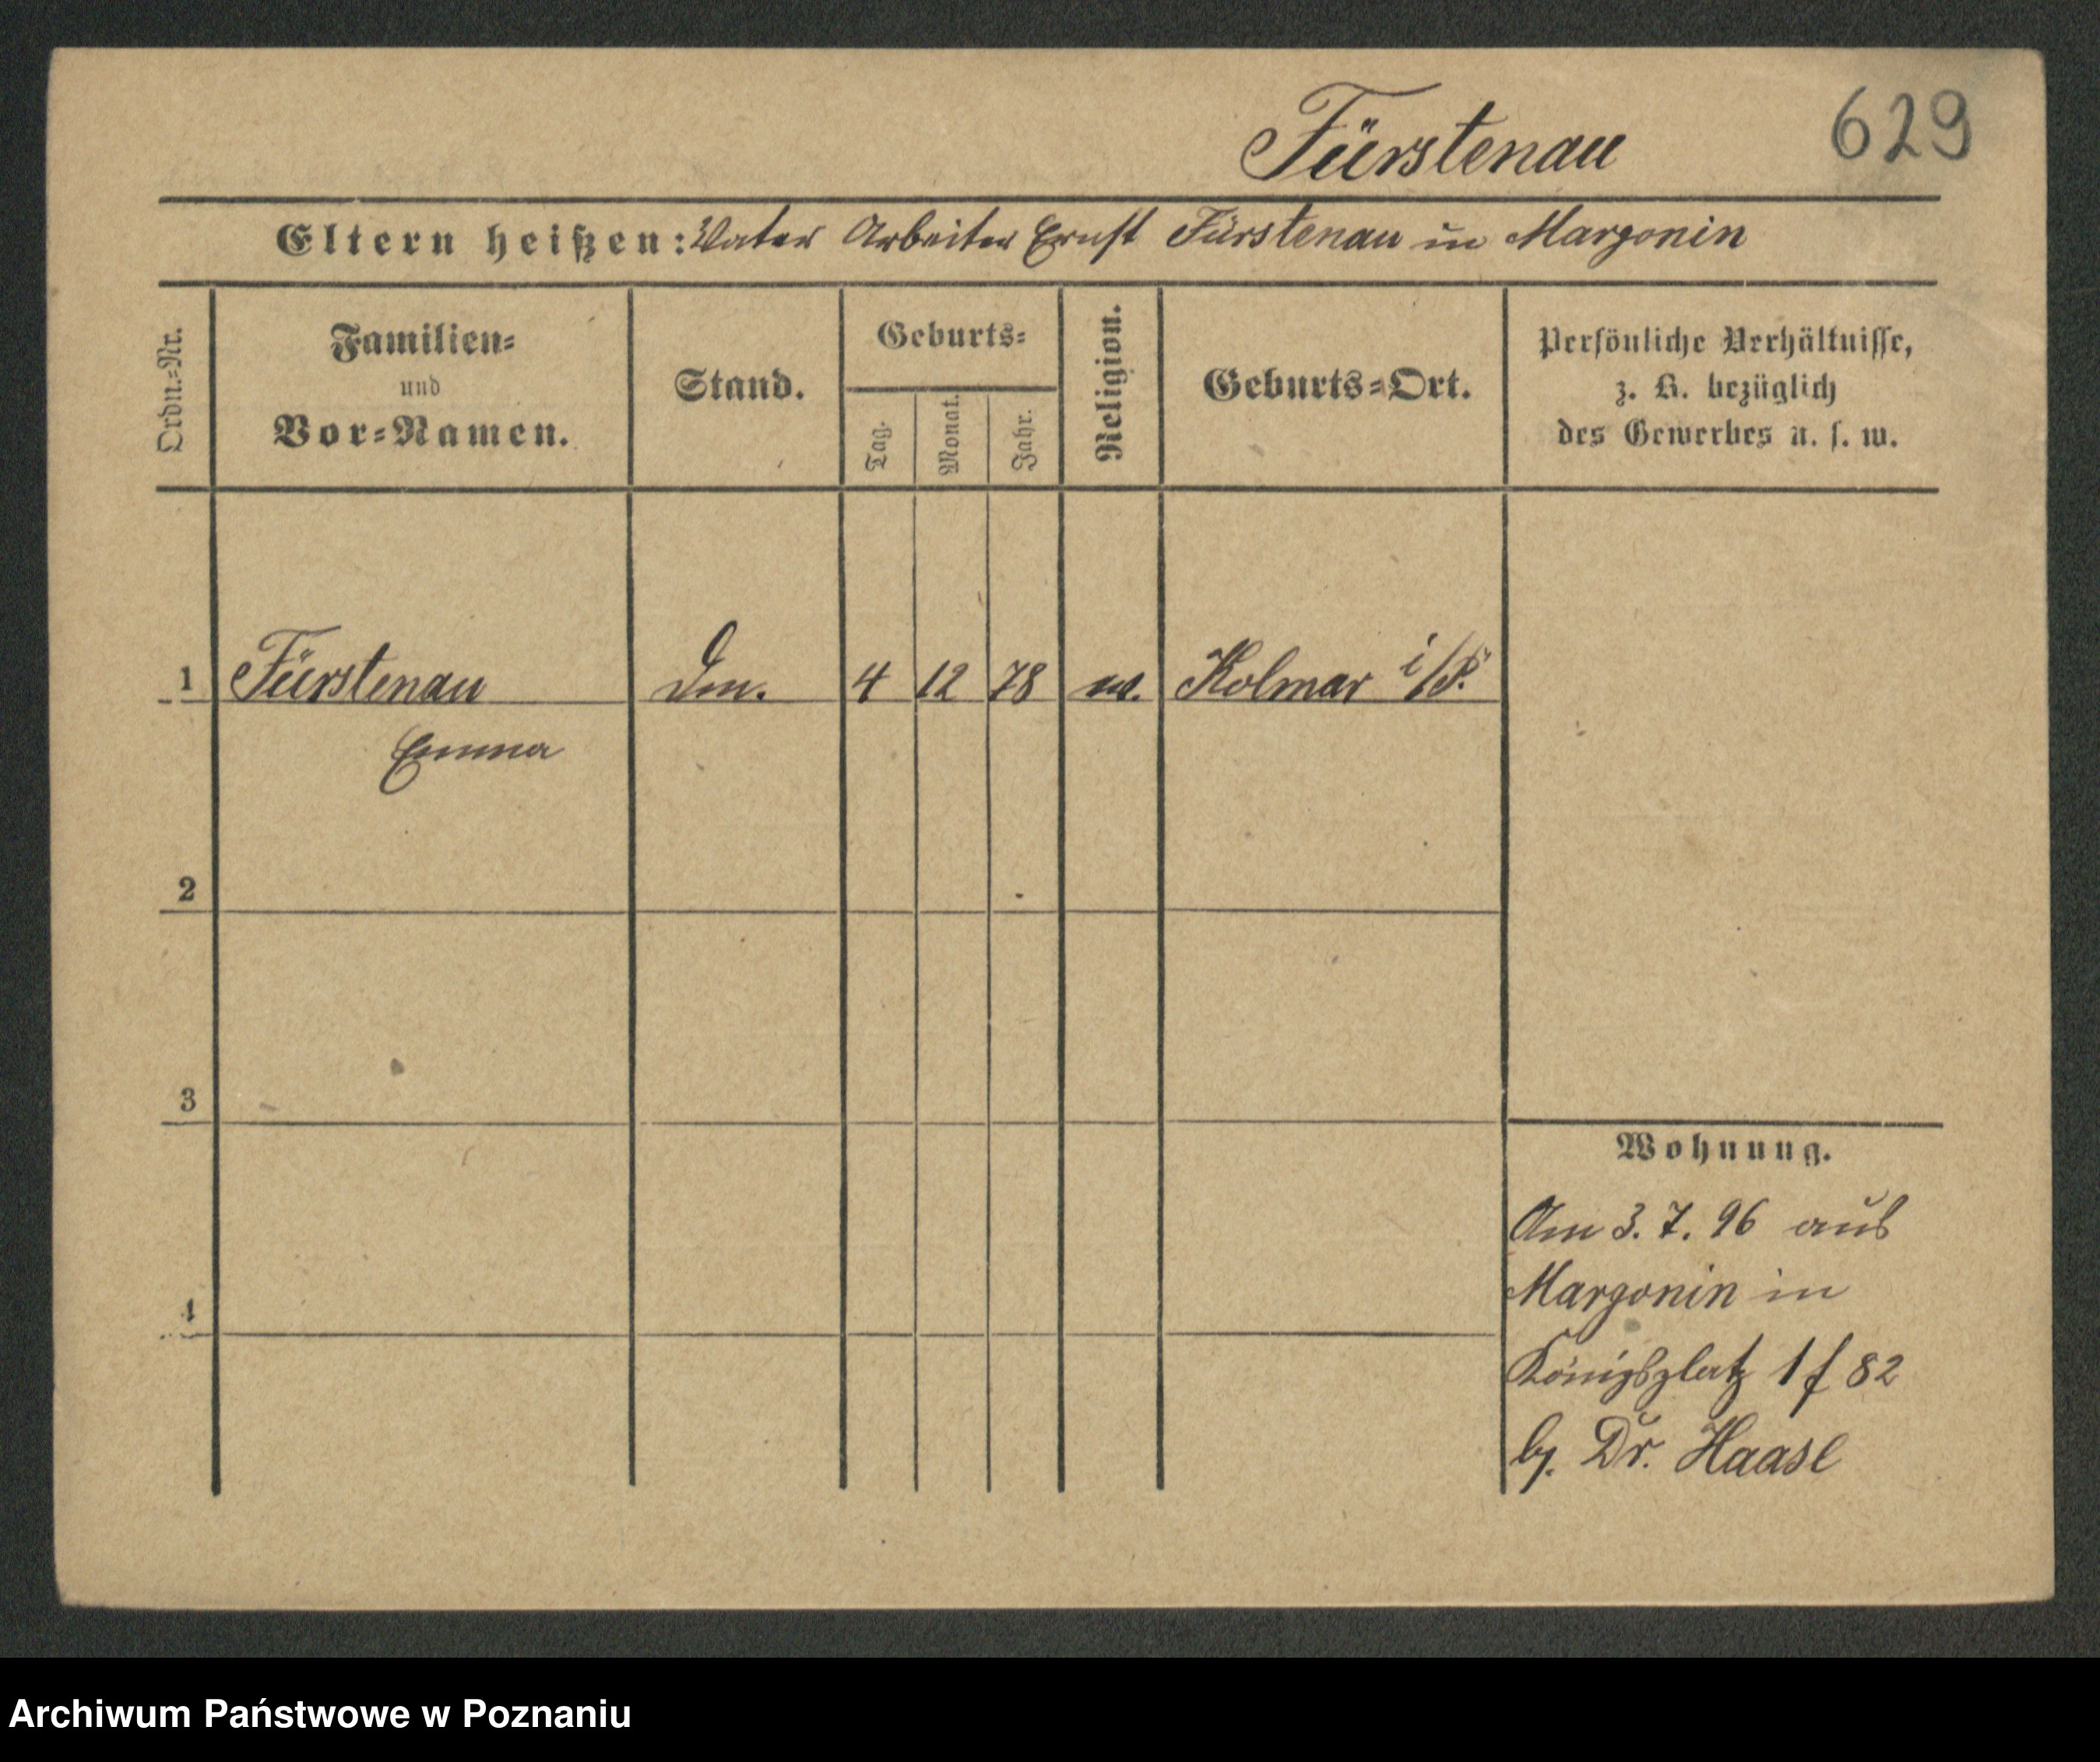 Fürstenau 629
Eltern heißen: Vater Arbeiter Ernst Fürstenau in Margonin
Ordn.=Nr.
Familien=
und
Vor=Namen.
Stand.
Geburts=
Tag.
Monat.
Jahr.
Religion.
Geburts=Ort.
Persönliche Verhältnisse,
z. B. bezüglich
des Gewerbes u. s. w.
1 Fürstenau 4 12 78 Kolmar i/P.
Emma
2
3
4
Wohnung.
Am 3. 7. 96 aus
Margonin in
Königsplatz 1 f 82
b/. Dr. Haase
Archiwum Państwowe w Poznaniu